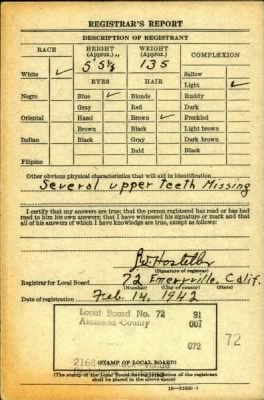 REGISTRAR'S REPORT
DESCRIPTION OF REGISTRANT
RACE HEIGHT (Approx.) WEIGHT (Approx.) COMPLEXION
5' 5½" 135
White ✓ Sallow
EYES HAIR Light ✓
Negro Blue ✓ Blonde Ruddy
Gray Red Dark
Oriental Hazel Brown ✓ Freckled
Brown Black Light brown
Indian Black Gray Dark brown
Bald Black
Filipino
Other obvious physical characteristics that will aid in identification
Several upper teeth Missing
I certify that my answers are true; that the person registered has read or has had
read to him his own answers; that I have witnessed his signature or mark and that
all of his answers of which I have knowledge are true, except as follows:
Hostetler
(Signature of registrar)
Registrar for Local Board 72 Emeryville, Calif.
(Number) (City or county) (State)
Date of registration Feb. 14, 1942
Local Board No. 72 91
Alameda County 007
072
72
2168
(STAMP OF LOCAL BOARD)
(The stamp of the Local Board
shall be placed in the above space)